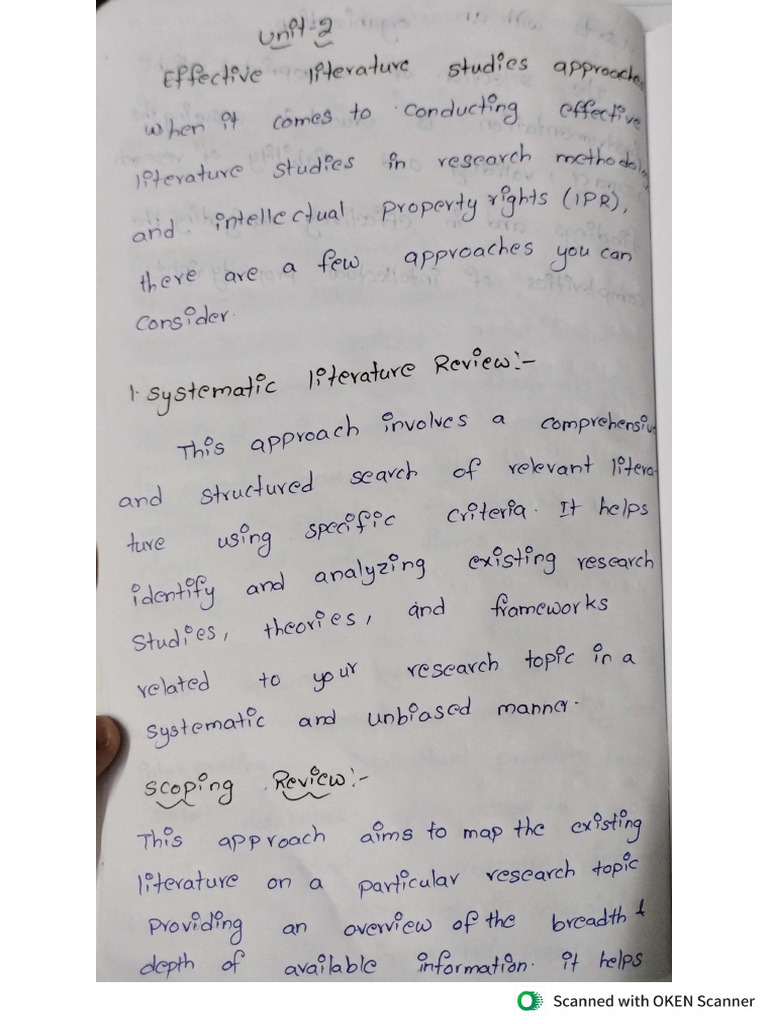 Unit-2
Effective literature studies approaches
when it comes to conducting effective
literature studies in research methodolo
and intellectual Property rights (IPR),
there are a few approaches you can
Consider.
1. Systematic literature Review:-
This approach involves a comprehensiv
and structured search of relevant litera-
ture using specific criteria. It helps
identify and analyzing existing research
Studies, theories, and frameworks
related to your research topic in a
systematic and unbiased manner.
Scoping Review:-
This approach aims to map the existing
literature on a particular research topic
Providing an overview of the breadth &
depth of available information. it helps
Scanned with OKEN Scanner